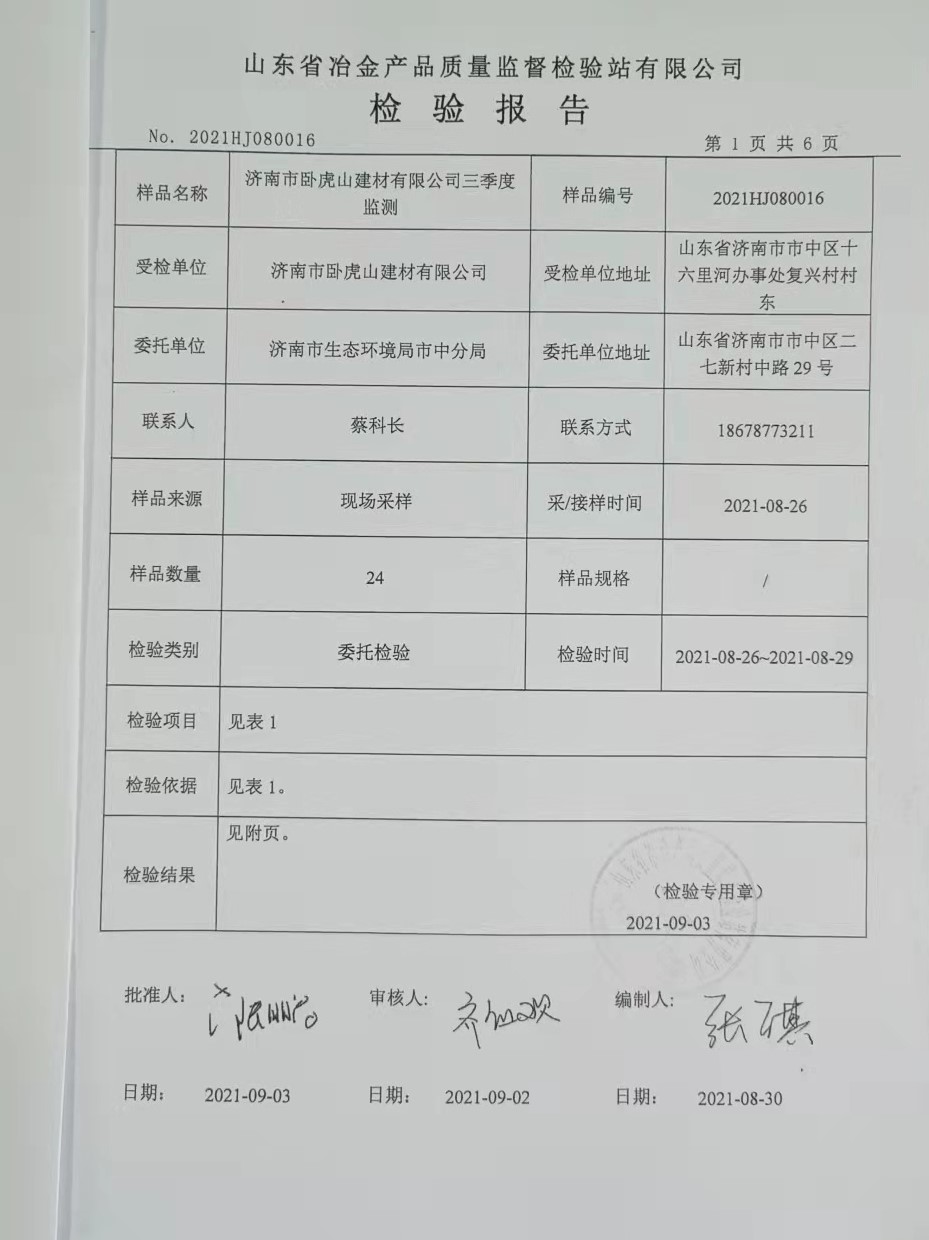 山东省冶金产品质量监督检验站有限公司
检验报告
No. 2021HJ080016
第 1 页 共 6 页
样品名称
济南市卧虎山建材有限公司三季度
监测
样品编号
2021HJ080016
受检单位
济南市卧虎山建材有限公司
受检单位地址
山东省济南市市中区十
六里河办事处复兴村村
东
委托单位
济南市生态环境局市中分局
委托单位地址
山东省济南市市中区二
七新村中路 29 号
联系人
蔡科长
联系方式
18678773211
样品来源
现场采样
采/接样时间
2021-08-26
样品数量
24
样品规格
/
检验类别
委托检验
检验时间
2021-08-26~2021-08-29
检验项目
见表 1
检验依据
见表 1。
检验结果
见附页。
（检验专用章）
2021-09-03
批准人：
审核人:
编制人:
张
日期：
2021-09-03
日期：
2021-09-02
日期：
2021-08-30